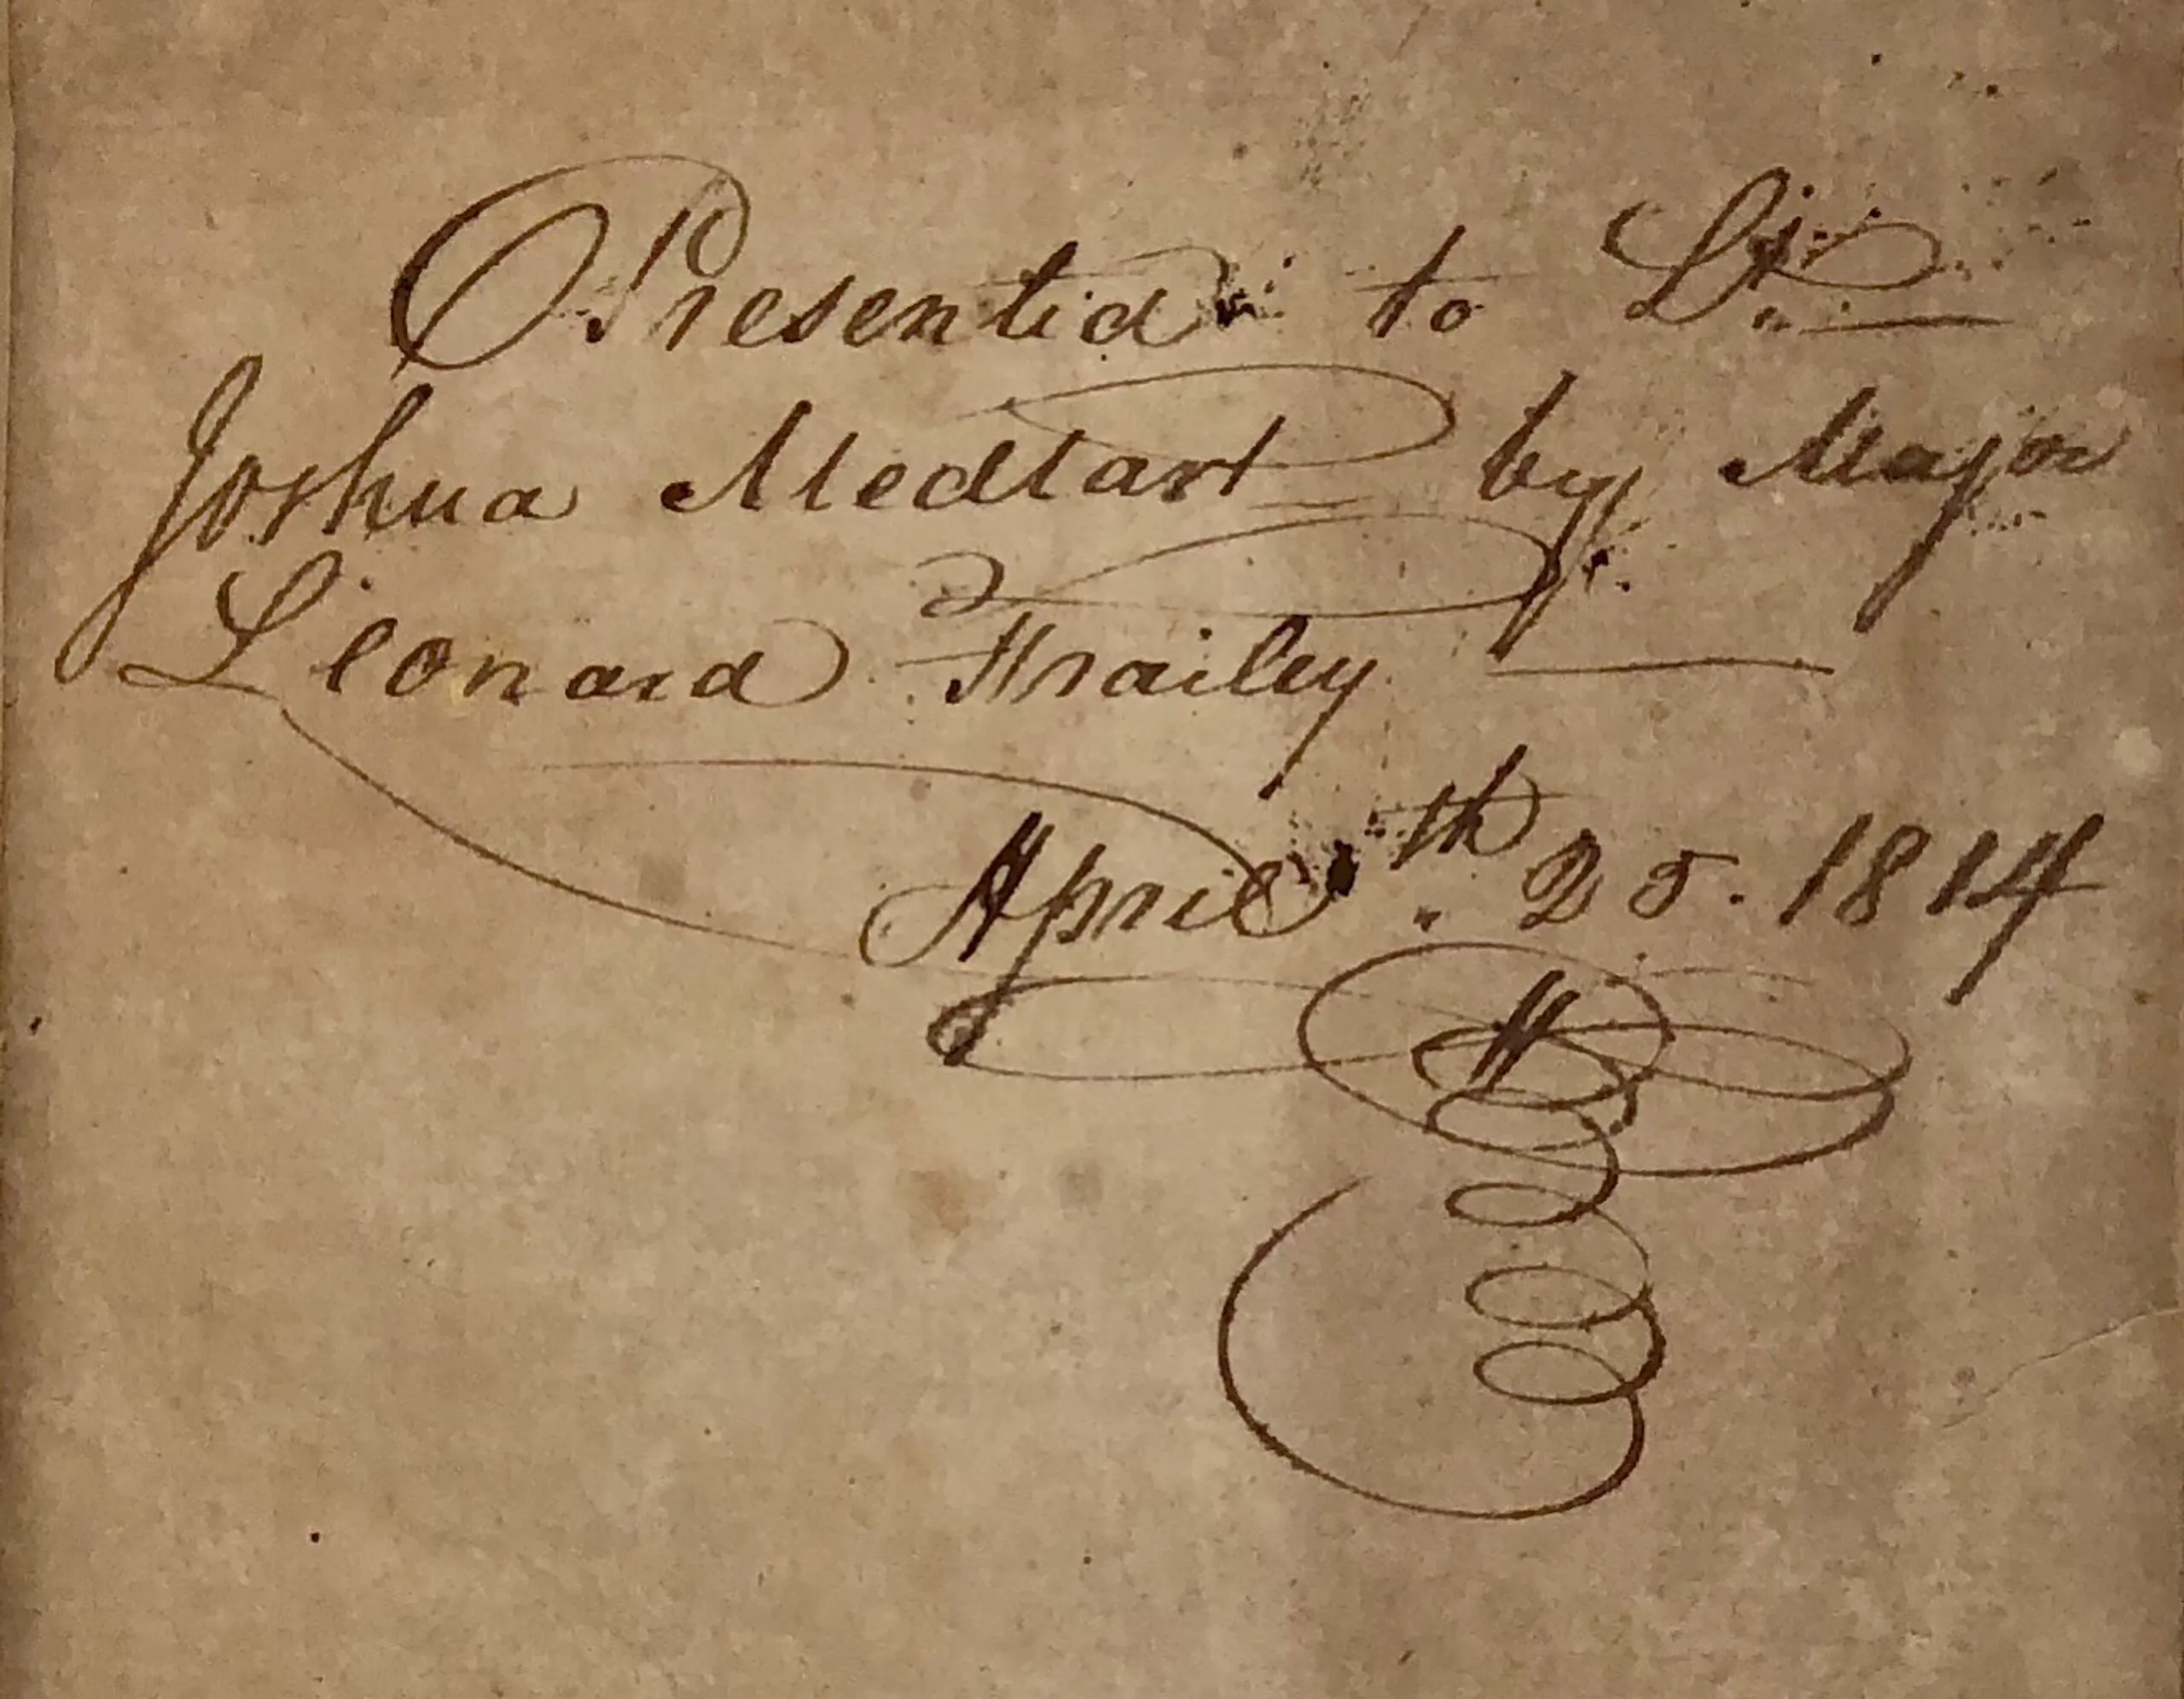 Presented to Lt.
Joshua Medtart by Major
Leonard Frailey
April th. 25. 1814